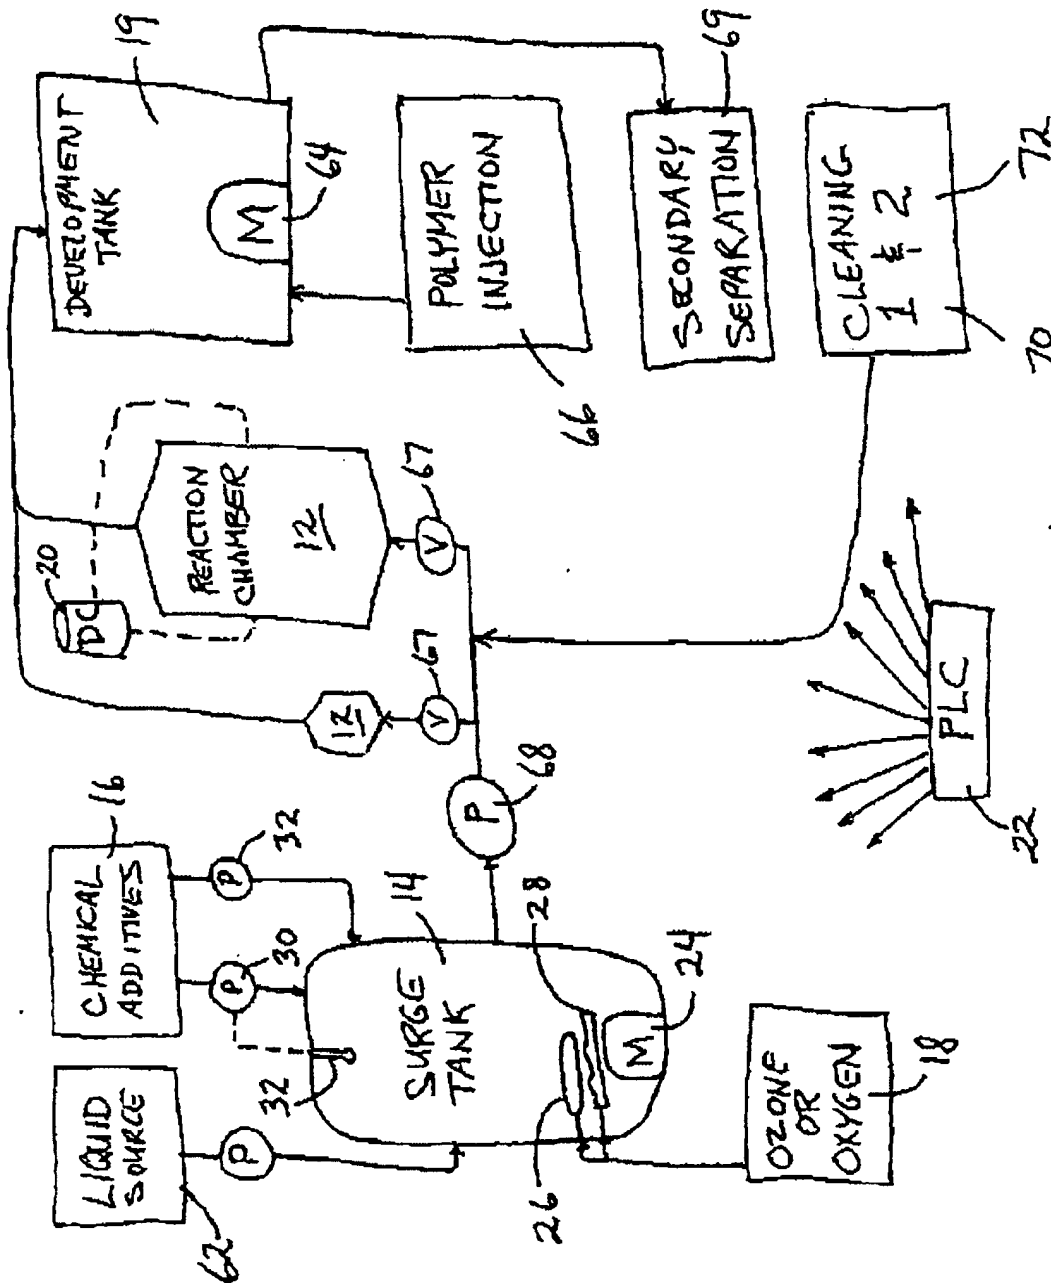 LIQUID
SOURCE
62
P
CHEMICAL
ADDITIVES
16
P
30
P
32
32
SURGE
TANK
14
26
28
M
24
OZONE
OR
OXYGEN
18
P
68
V
67
V
67
12
REACTION
CHAMBER
12
DC
20
DEVELOPMENT
TANK
19
M
64
POLYMER
INJECTION
66
SECONDARY
SEPARATION
69
CLEANING
1 & 2
70
72
PLC
22